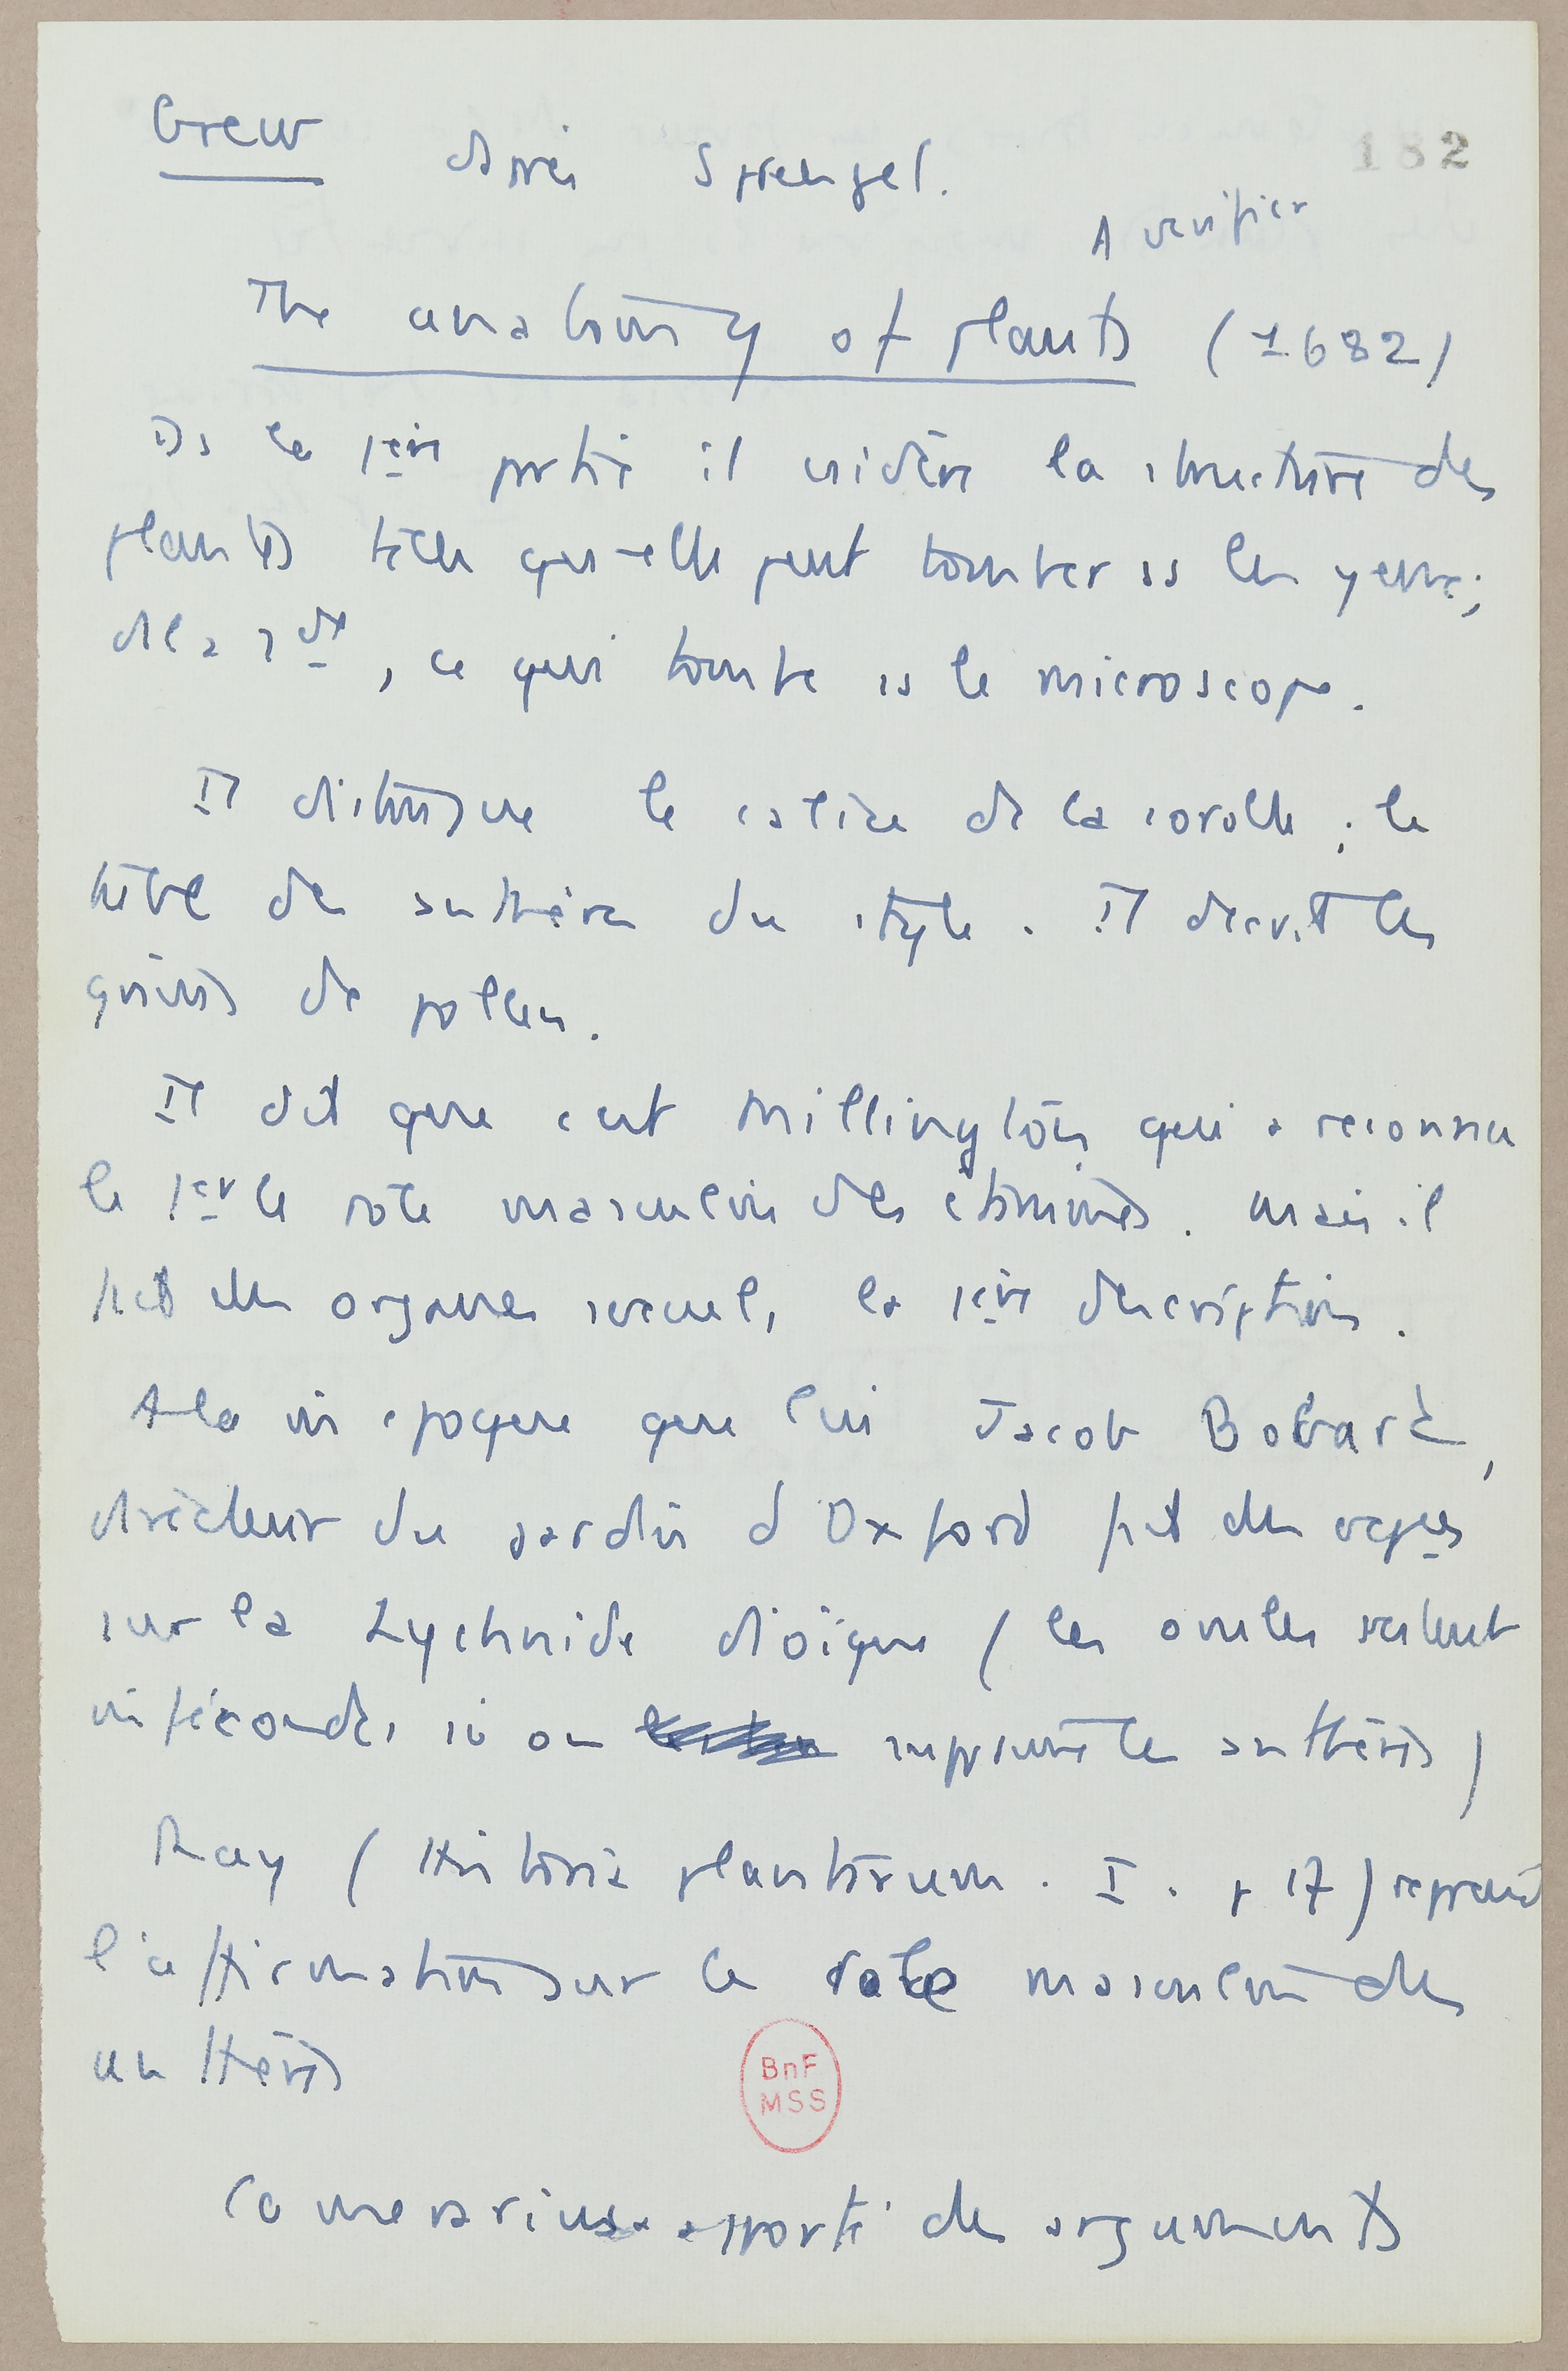 Grew d'après Sprengel.
182
A verifier
The anatomy of plants (1682)
Ds la 1ère partie il cidère la structure des
plantes telle qu'elle peut tomber ss les yeux;
ds la 2de, ce qui tombe ss le microscope.
Il distingue le calice de la corolle ; le
tube des anthères du style. Il decrit les
grains de pollen.
Il dit que c'est Millington qui a reconnu
le 1er le role masculin des étamines. Mais il
fait des organes sexuels la 1ère description.
A la m epoque que lui Jacob Bobard,
directeur du jardin d'Oxford fait des exp
sur la Lychnide dioïque (les ovules restent
infécondés si on supprime les anthères)
Ray (Historia plantarum. I. p 17) reprend
l'affirmation sur le role masculin des
anthères
BnF
MSS
Camerarius a apporté des arguments